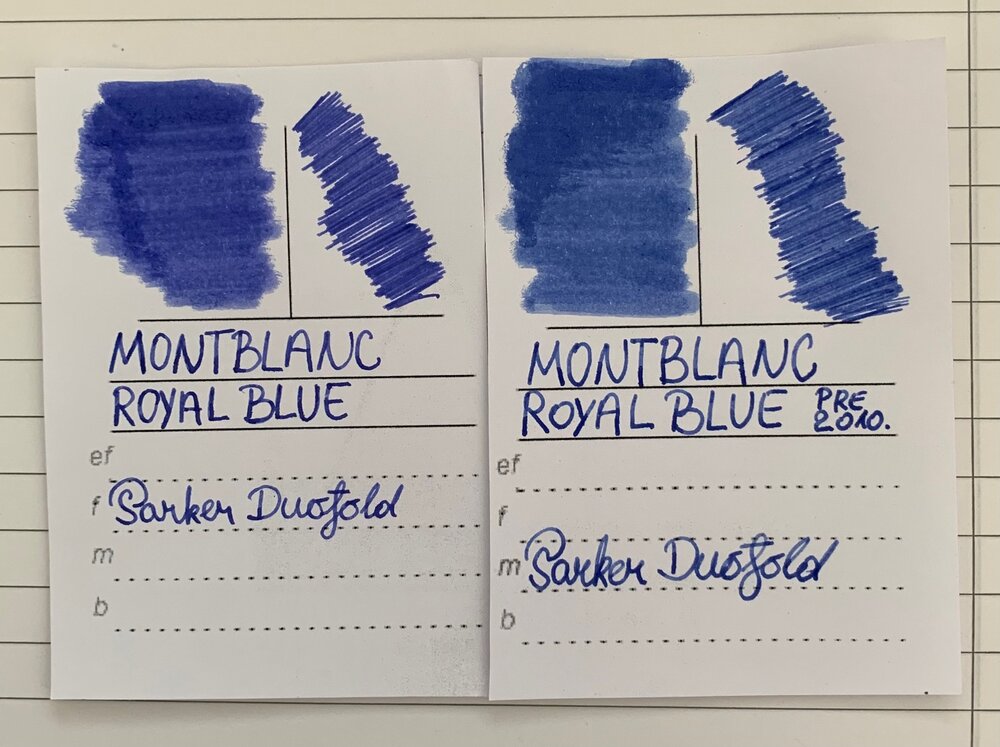 MONTBLANC
ROYAL BLUE
ef
f Parker Duofold
m
b
MONTBLANC
ROYAL BLUE PRE 2010.
ef
f
m Parker Duofold
b